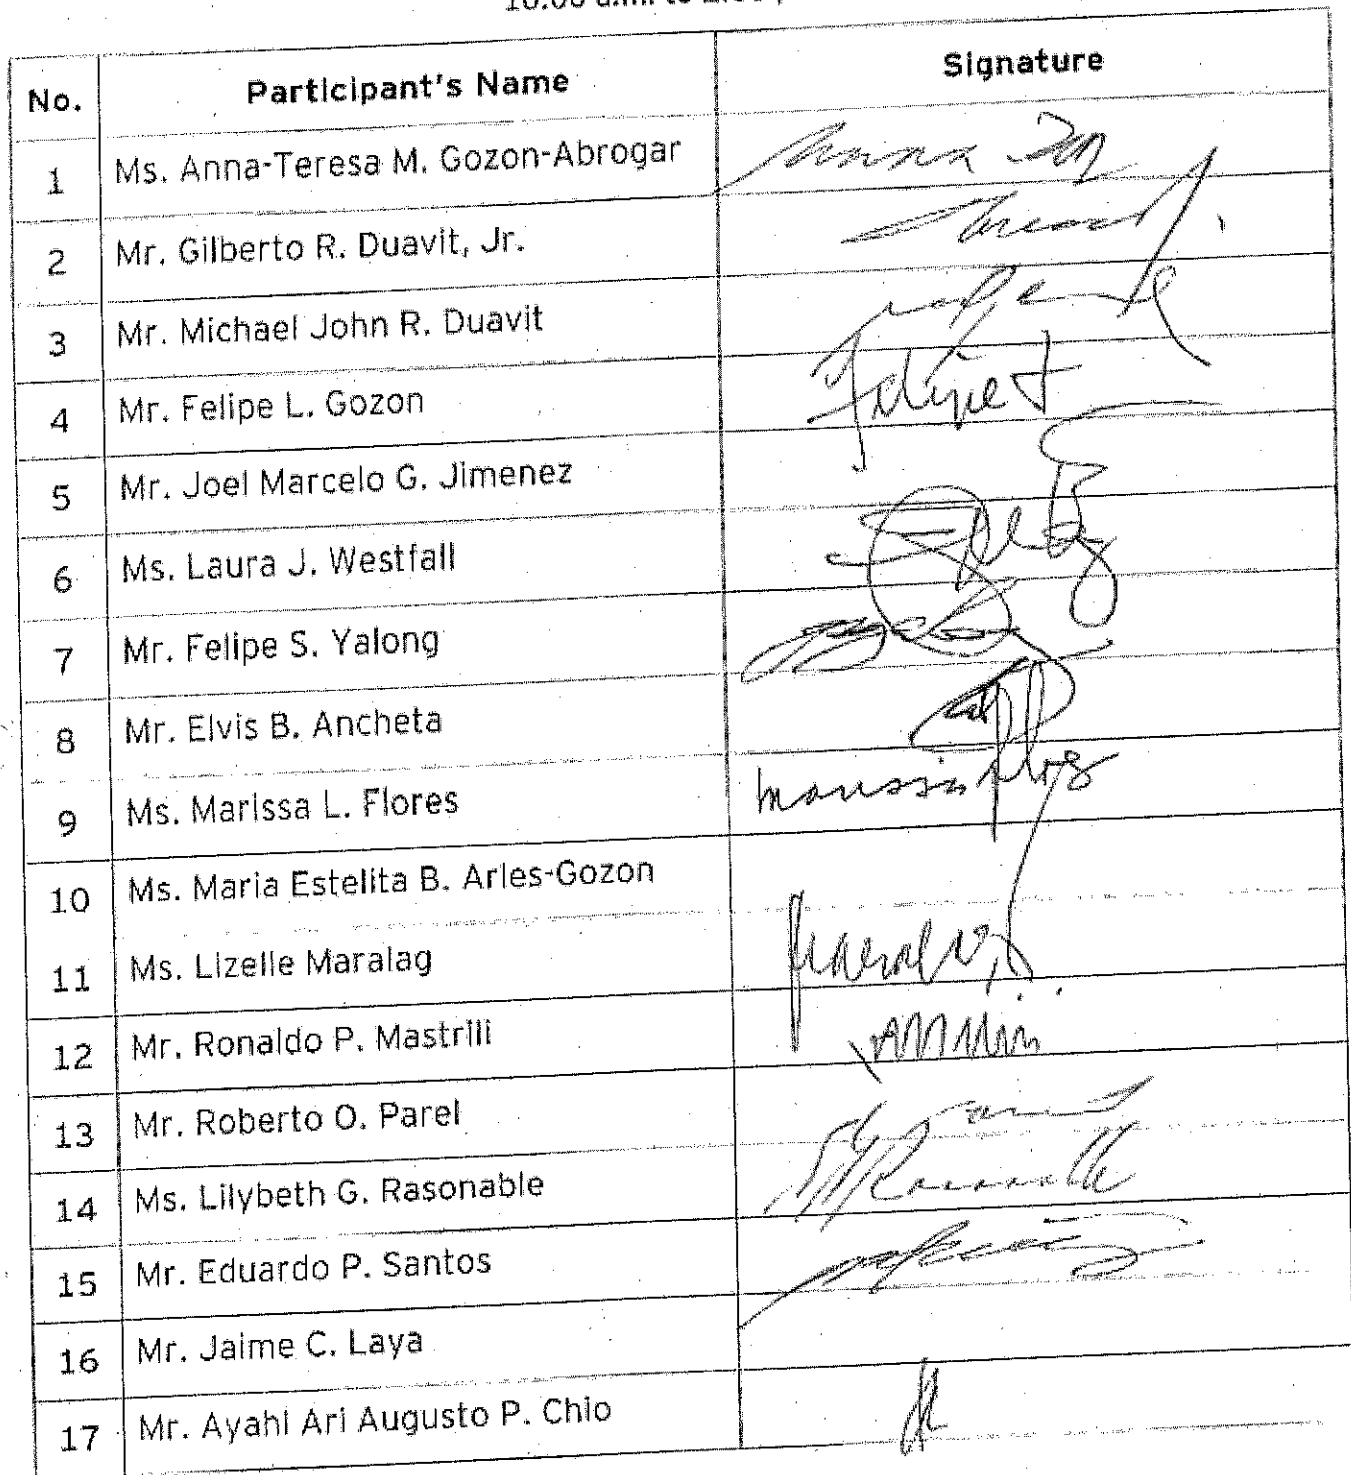 No. Participant's Name Signature
1 Ms. Anna-Teresa M. Gozon-Abrogar
2 Mr. Gilberto R. Duavit, Jr.
3 Mr. Michael John R. Duavit
4 Mr. Felipe L. Gozon
5 Mr. Joel Marcelo G. Jimenez
6 Ms. Laura J. Westfall
7 Mr. Felipe S. Yalong
8 Mr. Elvis B. Ancheta
9 Ms. Marissa L. Flores
10 Ms. Maria Estelita B. Arles-Gozon
11 Ms. Lizelle Maralag
12 Mr. Ronaldo P. Mastrili
13 Mr. Roberto O. Parel
14 Ms. Lilybeth G. Rasonable
15 Mr. Eduardo P. Santos
16 Mr. Jaime C. Laya
17 Mr. Ayahl Ari Augusto P. Chio